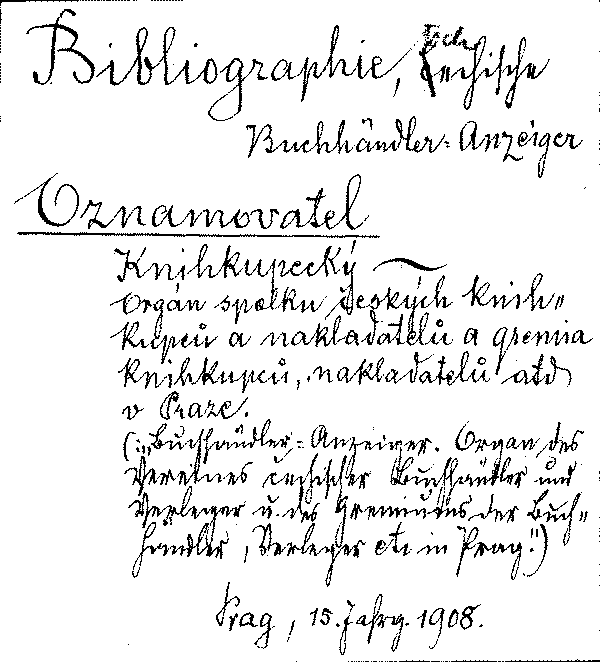 Bibliographie, čechische
Buchhändler-Anzeiger
Oznamovatel
Knihkupecký ~
Orgán spolku českých knih-
kupců a nakladatelů a gremia
knihkupců, nakladatelů atd
v Praze.
(: „Buchhändler-Anzeiger. Organ des
Vereines čechischer Buchhändler und
Verleger u. des Gremiums der Buch-
händler, Verleger etc in Prag.")
Prag, 15. Jahrg. 1908.